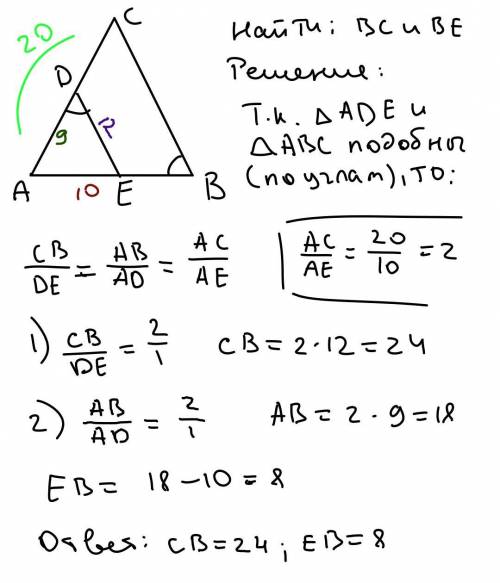 20
C
D
9
12
A
10
E
B
Найти: BC и BE
Решение:
Т.к. △ADE и
△ABC подобны
(по углам), то:
CB/DE = AB/AD = AC/AE
AC/AE = 20/10 = 2
1) CB/DE = 2/1 CB = 2 · 12 = 24
2) AB/AD = 2/1 AB = 2 · 9 = 18
EB = 18 - 10 = 8
Ответ: CB = 24; EB = 8